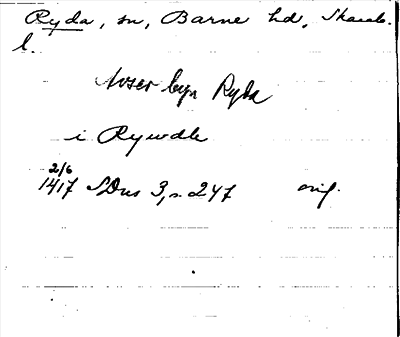 Ryda, sn, Barne hd, Skarab.
l.
avser byn Ryda
i Rywdle
2/6
1417 SDns 3, s. 247 orig.